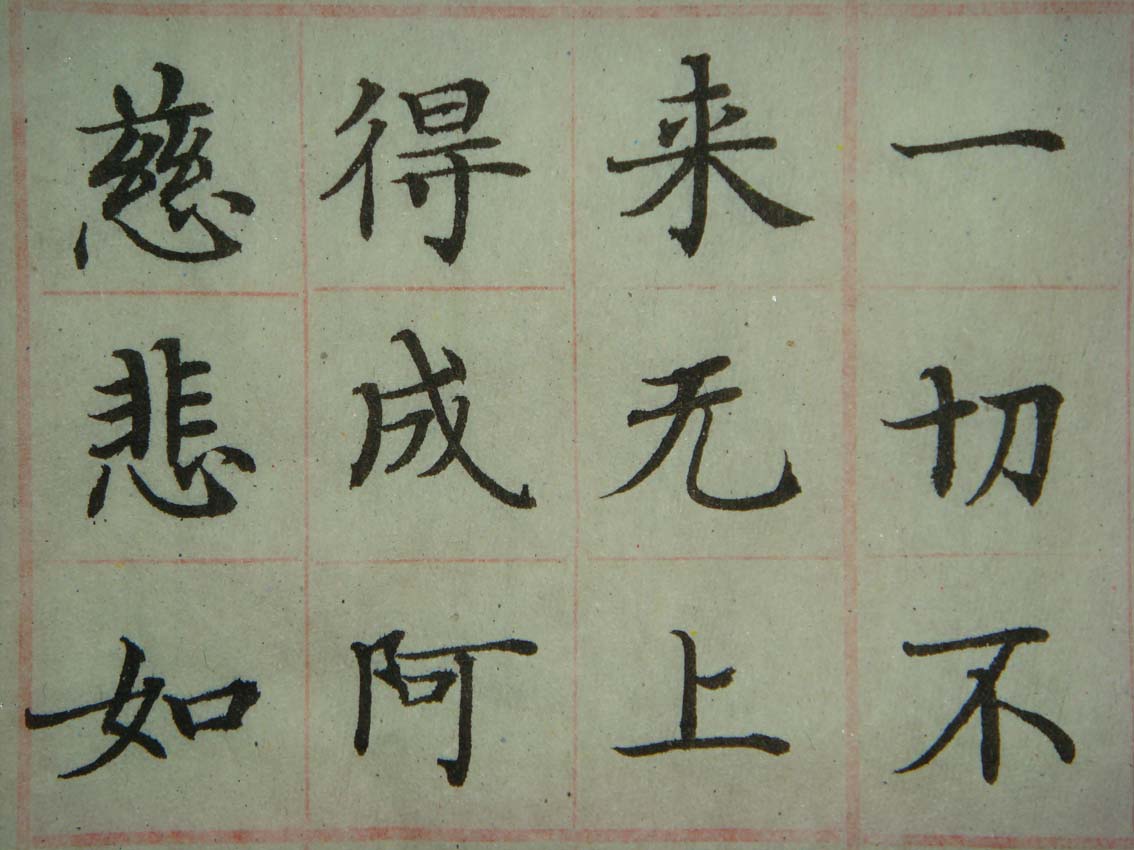 一切不
来无上
得成阿
慈悲如